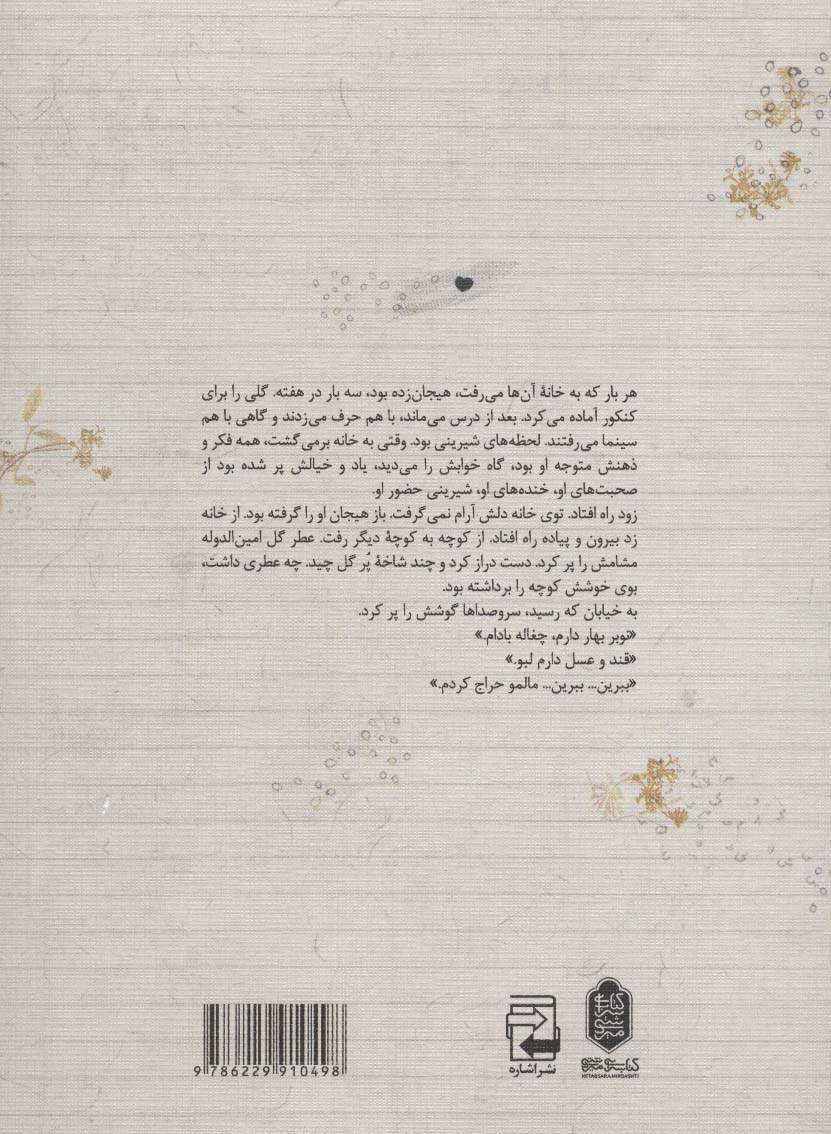 هر بار که به خانهٔ آن‌ها می‌رفت، هیجان‌زده بود، سه بار در هفته. گلی را برای
کنکور آماده می‌کرد. بعد از درس می‌ماند، با هم حرف می‌زدند و گاهی با هم
سینما می‌رفتند. لحظه‌های شیرینی بود. وقتی به خانه برمی‌گشت، همه فکر و
ذهنش متوجه او بود، گاه خوابش را می‌دید، یاد و خیالش پر شده بود از
صحبت‌های او، خنده‌های او، شیرینی حضور او.
زود راه افتاد. توی خانه دلش آرام نمی‌گرفت. باز هیجان او را گرفته بود. از خانه
زد بیرون و پیاده راه افتاد. از کوچه به کوچهٔ دیگر رفت. عطر گل امین‌الدوله
مشامش را پر کرد. دست دراز کرد و چند شاخهٔ پُر گل چید. چه عطری داشت،
بوی خوشش کوچه را برداشته بود.
به خیابان که رسید، سروصداها گوشش را پر کرد.
«نوبر بهار دارم، چغاله بادام.»
«قند و عسل دارم لبو.»
«ببرین... ببرین... مالمو حراج کردم.»
کتابسرای میردشتی
کتابسرای میردشتی
KETABSARA MIRDASHTI
نشر اشاره
9 786229 910498